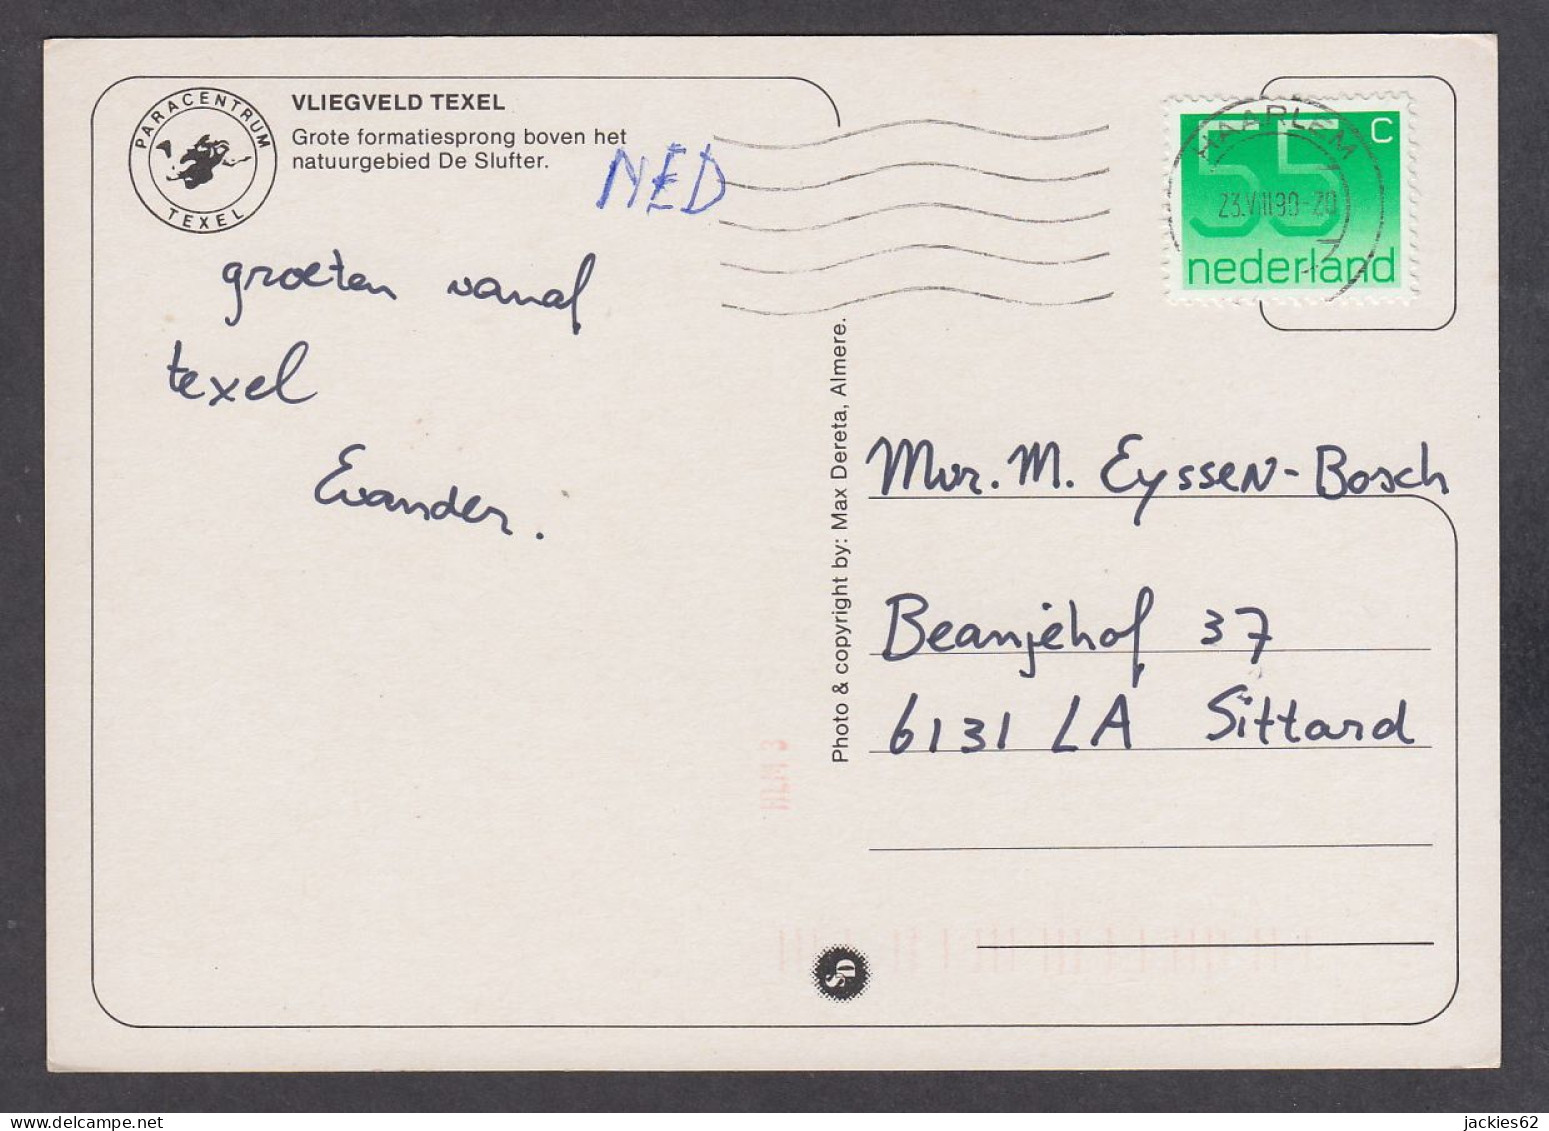 PARACENTRUM
TEXEL
VLIEGVELD TEXEL
Grote formatiesprong boven het
natuurgebied De Slufter.
NED
HAARLEM
23.VIII90-20
55 C
nederland
groeten vanaf
texel
Evander.
Photo & copyright by: Max Dereta, Almere.
Mvr. M. Eyssen-Bosch
Beanjehof 37
6131 LA Sittard
SD
jackies62